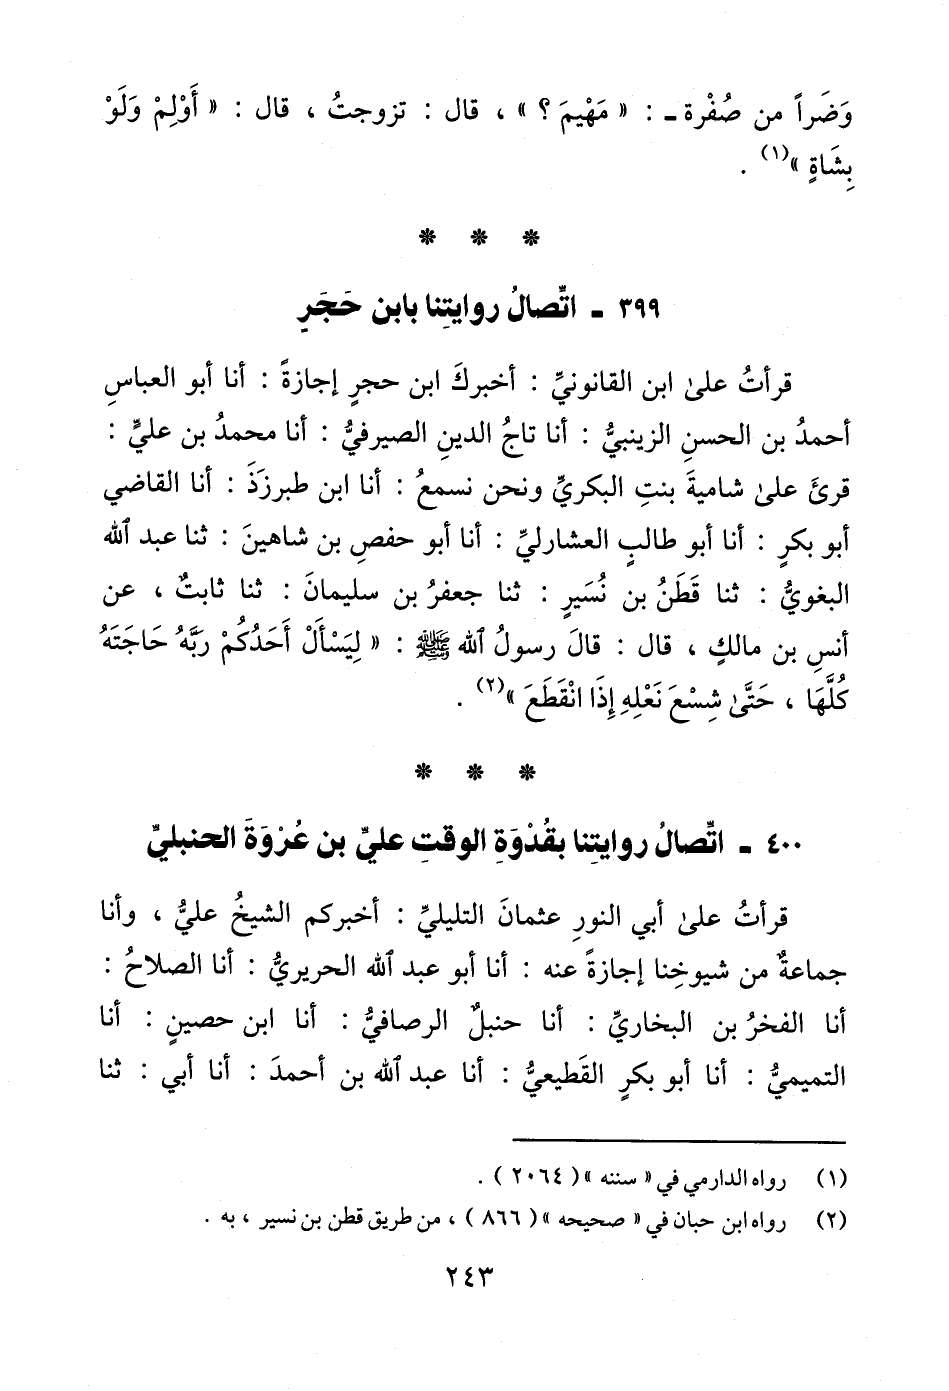 وَضَراً من صُفْرة ـ : « مَهْيَمَ ؟ » ، قال : تزوجتُ ، قال : « أَوْلِمْ وَلَوْ
بِشَاةٍ »(١) .
* * *
٣٩٩ ـ اتِّصالُ روايتِنا بابن حَجَرٍ
قرأتُ علىٰ ابن القانونيِّ : أخبركَ ابن حجرٍ إجازةً : أنا أبو العباسِ
أحمدُ بن الحسنِ الزينبيُّ : أنا تاجُ الدينِ الصيرفيُّ : أنا محمدُ بن عليٍّ :
قرئَ علىٰ شاميةَ بنتِ البكريِّ ونحن نسمعُ : أنا ابن طبرزَذَ : أنا القاضي
أبو بكرٍ : أنا أبو طالبٍ العشارليِّ : أنا أبو حفصِ بن شاهينَ : ثنا عبد الله
البغويُّ : ثنا قَطَنُ بن نُسَيرٍ : ثنا جعفرُ بن سليمانَ : ثنا ثابتٌ ، عن
أنسِ بن مالكٍ ، قال : قالَ رسولُ الله ﷺ : « لِيَسْأَلْ أَحَدُكُمْ رَبَّهُ حَاجَتَهُ
كُلَّهَا ، حَتَّىٰ شِسْعَ نَعْلِهِ إِذَا انْقَطَعَ »(٢) .
* * *
٤٠٠ ـ اتِّصالُ روايتِنا بقُدْوَةِ الوقتِ عليِّ بن عُرْوَةَ الحنبليِّ
قرأتُ علىٰ أبي النورِ عثمانَ التليليِّ : أخبركم الشيخُ عليُّ ، وأنا
جماعةٌ من شيوخِنا إجازةً عنه : أنا أبو عبد الله الحريريُّ : أنا الصلاحُ :
أنا الفخرُ بن البخاريِّ : أنا حنبلٌ الرصافيُّ : أنا ابن حصينٍ : أنا
التميميُّ : أنا أبو بكرٍ القَطيعيُّ : أنا عبد الله بن أحمدَ : أنا أبي : ثنا
(١) رواه الدارمي في « سننه » ( ٢٠٦٤ ) .
(٢) رواه ابن حبان في « صحيحه » ( ٨٦٦ ) ، من طريق قطن بن نسير ، به .
٢٤٣